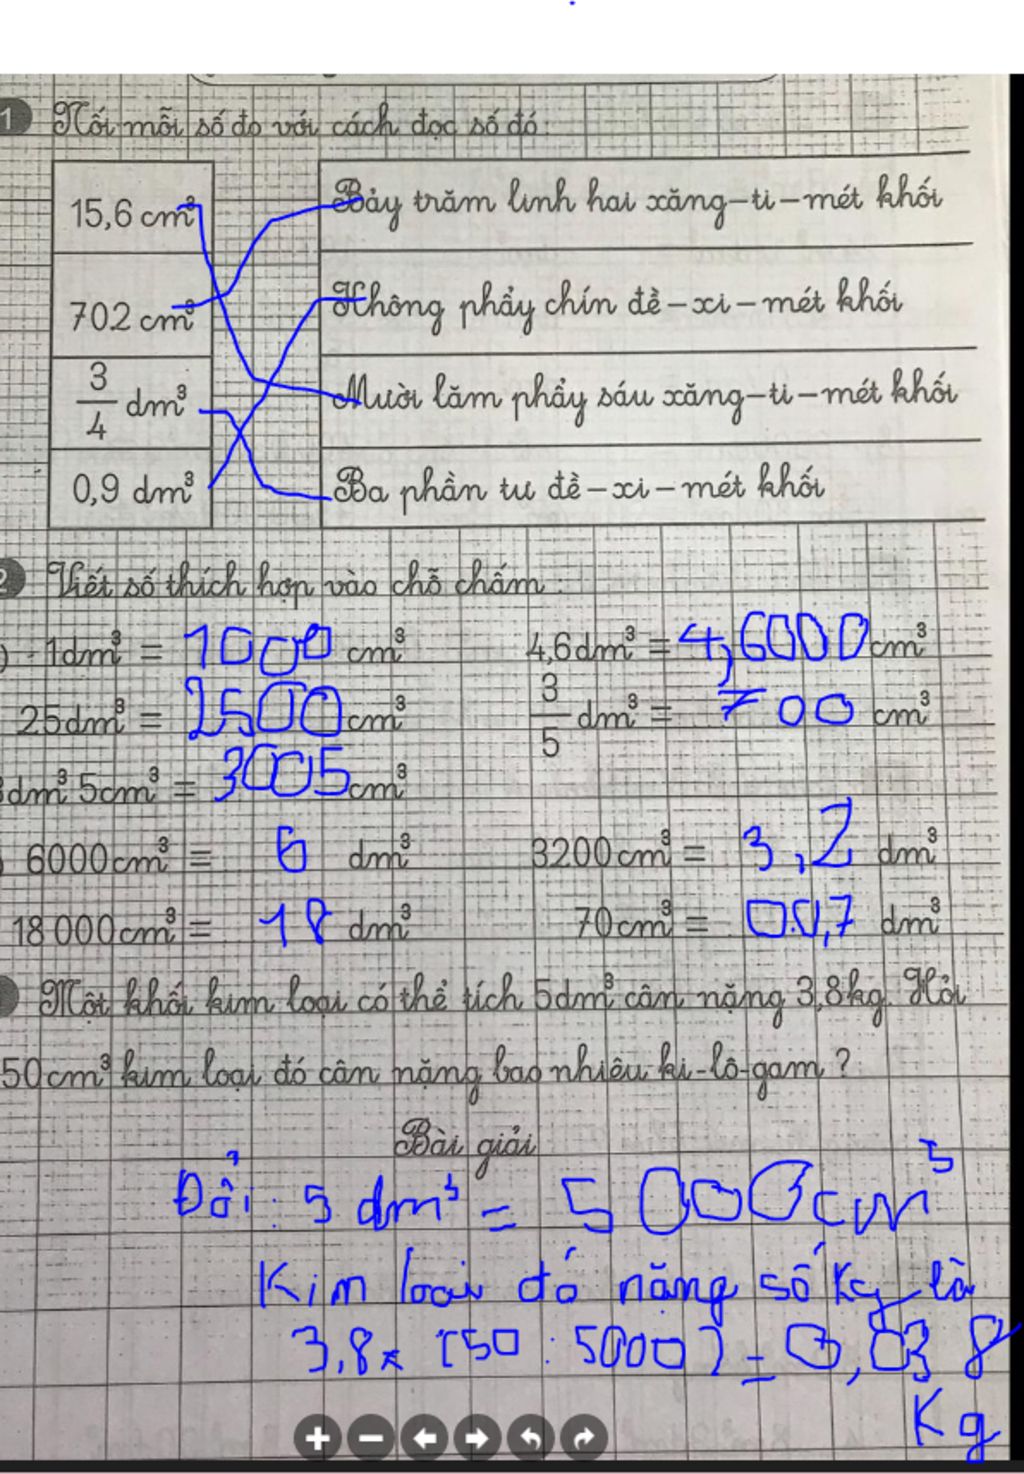 1 Nối mỗi số đo với cách đọc số đó:
15,6 cm³ Bảy trăm linh hai xăng-ti-mét khối
702 cm³ Không phẩy chín đề-xi-mét khối
3/4 dm³ Mười lăm phẩy sáu xăng-ti-mét khối
0,9 dm³ Ba phần tư đề-xi-mét khối
2 Viết số thích hợp vào chỗ chấm:
) 1dm³ = 1000 cm³ 4,6dm³ = 4,6000 cm³
25dm³ = 2500 cm³ 3/5 dm³ = 700 cm³
3dm³ 5cm³ = 3005 cm³
) 6000cm³ = 6 dm³ 3200cm³ = 3,2 dm³
18 000cm³ = 18 dm³ 70cm³ = 00,7 dm³
Một khối kim loại có thể tích 5dm³ cân nặng 3,8kg. Hỏi
50cm³ kim loại đó cân nặng bao nhiêu ki-lô-gam ?
Bài giải
Đổi : 5 dm³ = 5000 cm³
Kim loại đó nặng số Kg là
3,8 x (50 : 5000) = 0,038
Kg